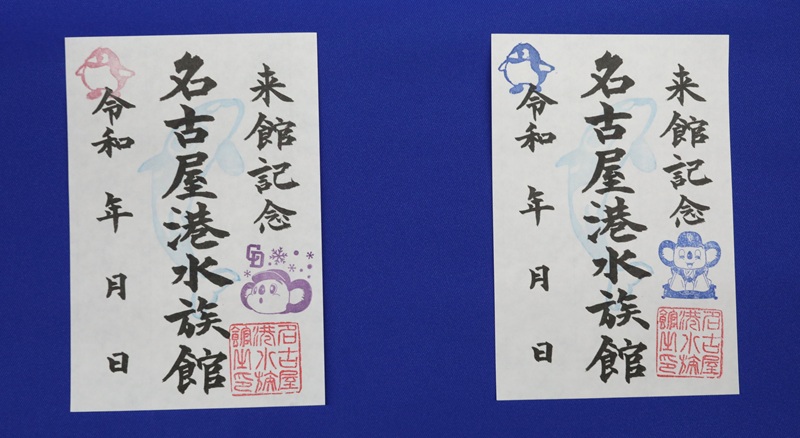 来館記念
名古屋港水族館
令和 年 月 日
CD
名古屋
港水族
館之印
来館記念
名古屋港水族館
令和 年 月 日
名古屋
港水族
館之印